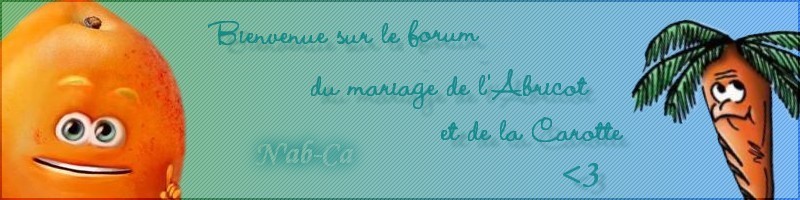 Bienvenue sur le forum
du mariage de l'Abricot
et de la Carotte
N'ab-Ca
<3